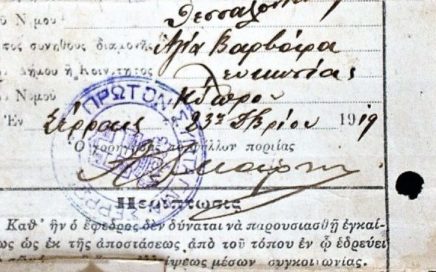 υ Νομου Θεσσαλον
πος συνήθους διαμονῆς Αγία Βαρβάρα
Δήμου ἢ Κοινότητος Λευκωσίας
υ Νομου Κύπρου
Ἐν Σέρραις 23η 1919
Ὁ χορηγήσας τὸ φύλλον πορείας
ΠΡΩΤΟΝ ΣΕΡΡ
Περίπτωσις
Καθ' ἣν ὁ ἔφεδρος δὲν δύναται νὰ παρουσιασθῇ ἐγκαί-
ως ὡς ἐκ τῆς ἀποστάσεως ἀπὸ τοῦ τόπου ἐν ᾧ ἑδρεύει
λείψεως μέσων συγκοινωνίας.